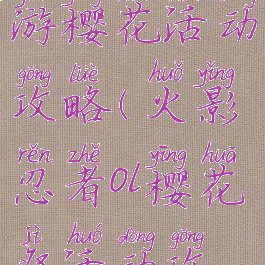 游樱花活动
gōng lüè huǒ yǐng
攻略(火影
rěn zhě yīng huā
忍者ol樱花
jì huó dòng gōng